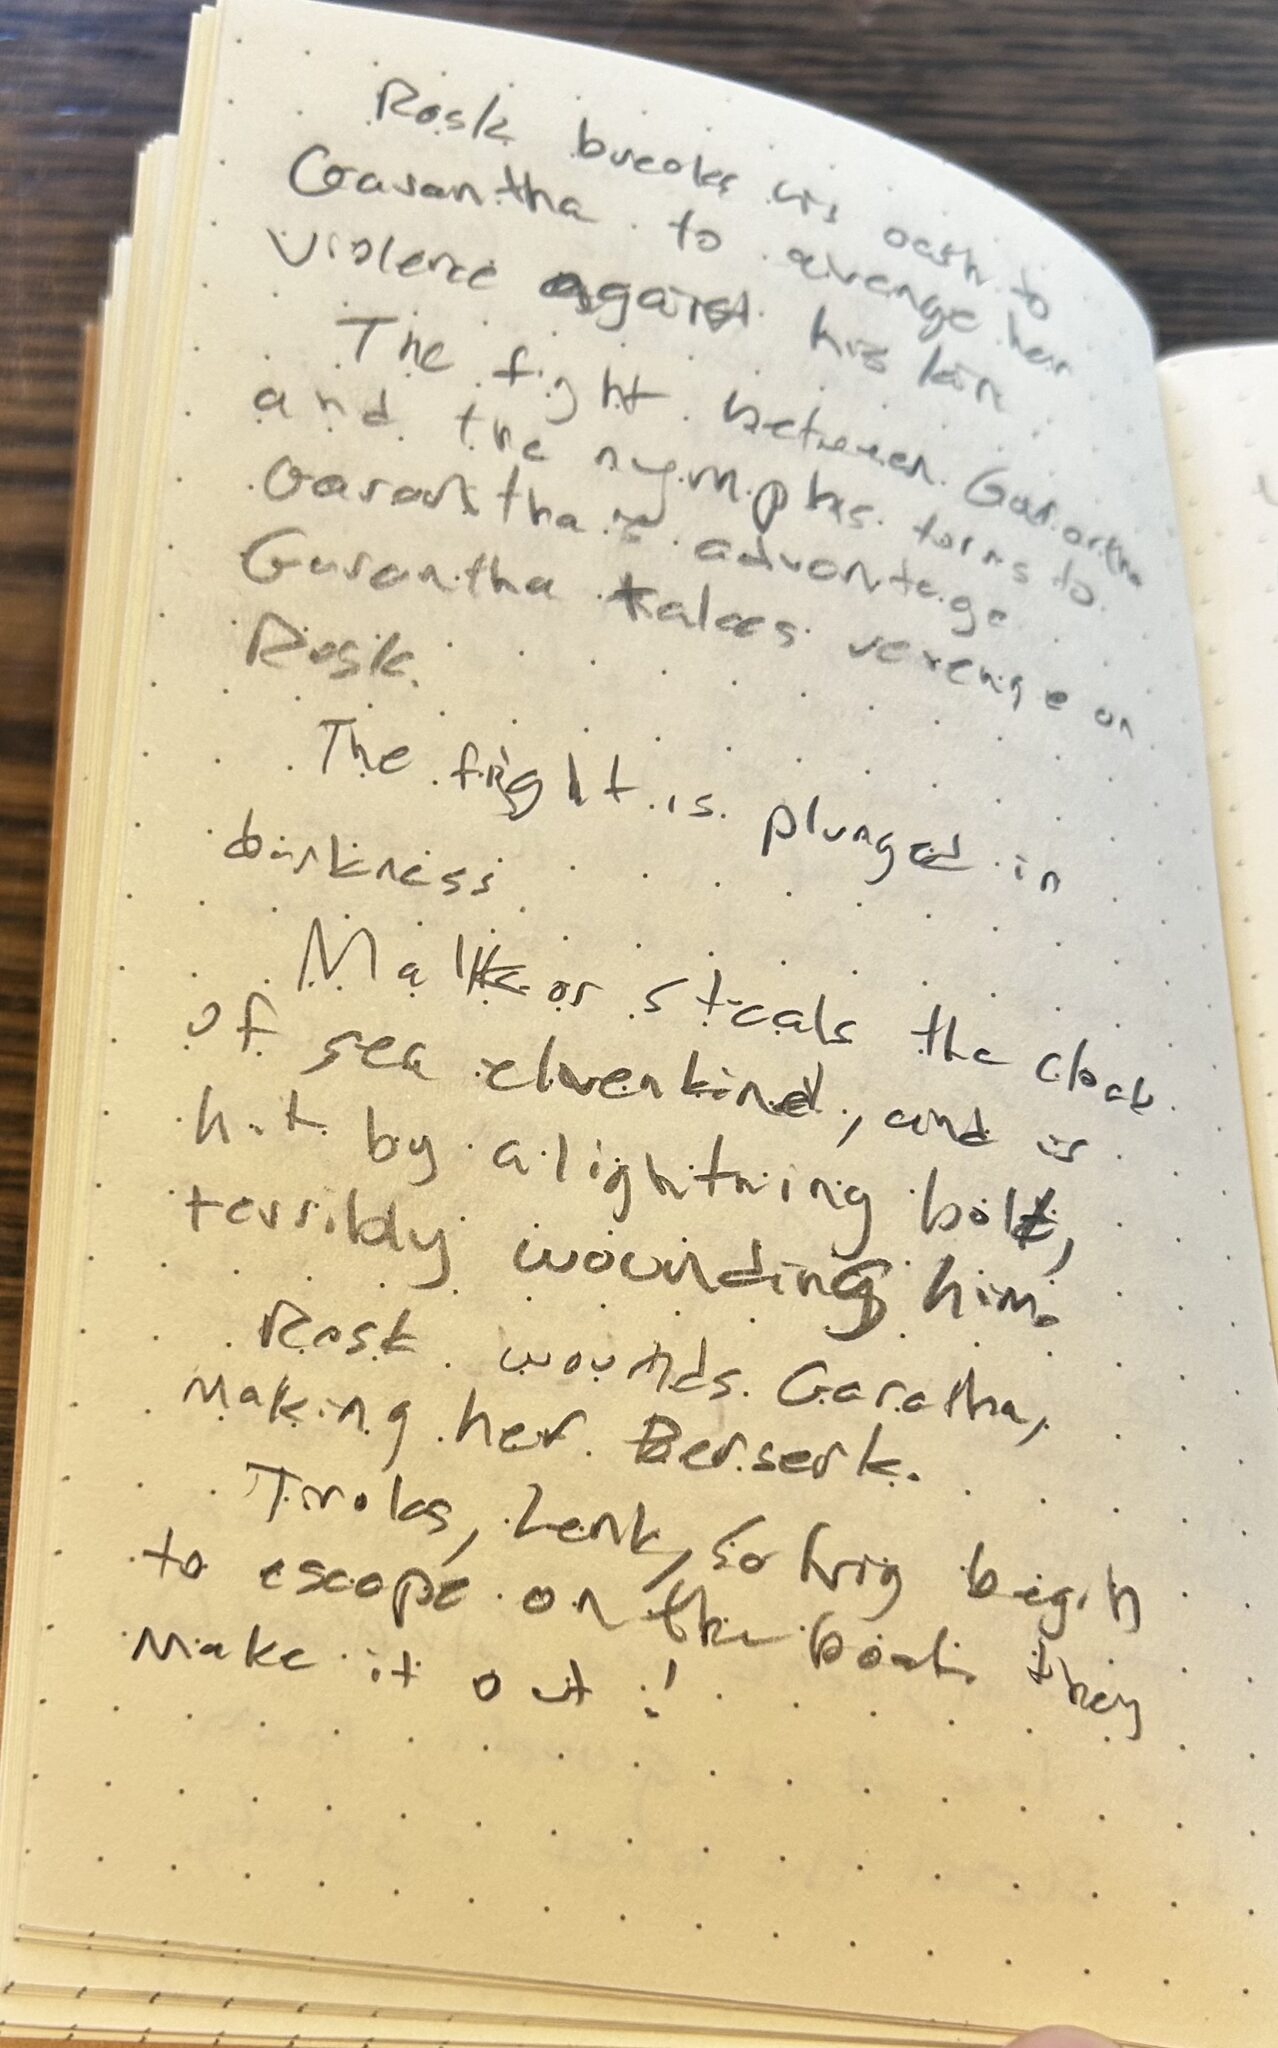 Rosk breaks his oath to
Garantha to avenge her
violence against his kin
The fight between Garantha
and the nymphs turns to
Garantha's advantage
Garantha takes revenge on
Rosk.
The fight is plunged in
darkness
Malkor steals the cloak
of sea elvenkind, and is
hit by a lightning bolt,
terribly wounding him.
Rosk wounds Garatha,
making her Berserk.
Tiroks, Lenk, Solvig begin
to escape on the boat. they
make it out!